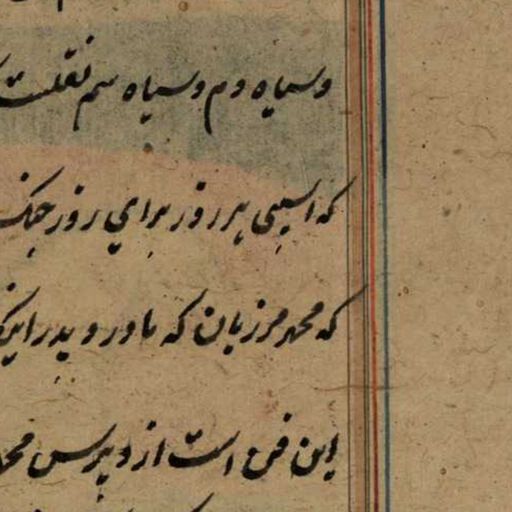 وسیاه دم وسیاه سم نقلست
که اسپی هر روز برای روز جنک
که محمد مرزبان که ماور و پدر
این فن است از و پرس محمد